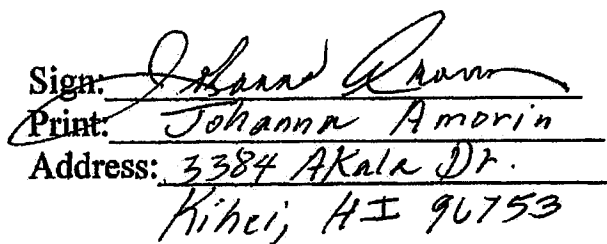 Sign: Johanna Amorin
Print: Johanna Amorin
Address: 3384 Akala Dr.
Kihei, HI 96753